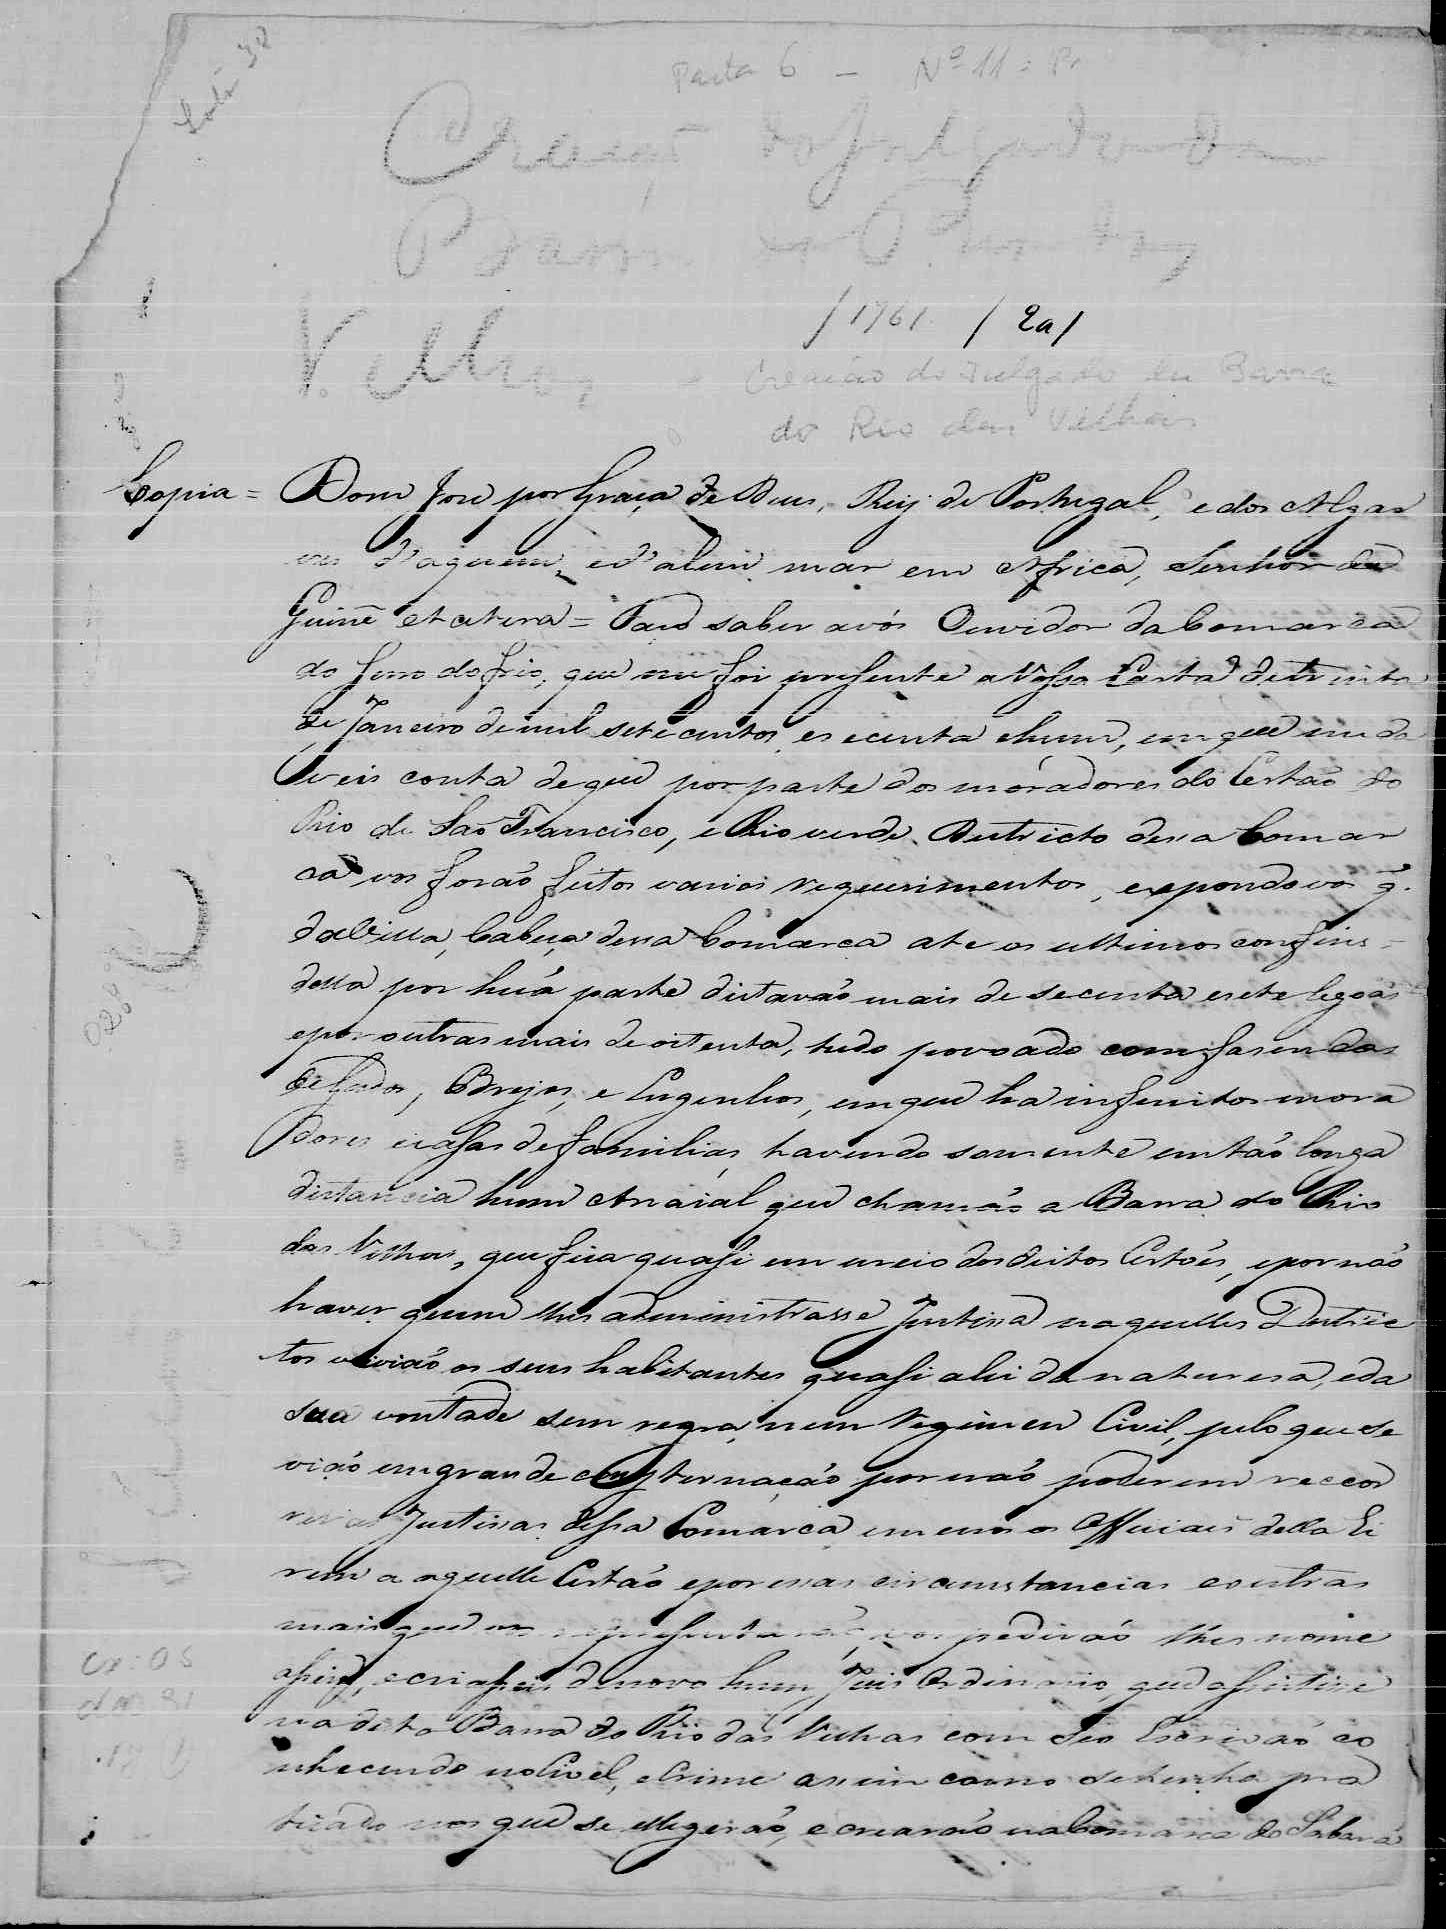 Pasta 6 - Nº 11 = P.
Creação do Julgado da
Barra do Rio das
Velhas
/ 1761 / 2a /
Creação do Julgado da Barra
do Rio das Velhas
Copia = Dom José por Graça de Deus, Rey de Portugal, e dos Algar
ves d'aquem, e d'alem mar em Africa, Senhor de
Guiné et cetera = Faço saber avós Ouvidor da Comarca
do Serro do frio, que me foi presente a Vossa Carta de trinta
de Janeiro de mil setecentos, e secenta e hum, em que me da
veis conta de que por parte dos moradores do Certão do
Rio de São Francisco, e Rio verde Destricto dessa Comar
ca vos forão feitos varios requerimentos, expondovos q.
da Villa, Cabeça dessa Comarca ate os ultimos confins =
della por huã parte distavão mais de secenta e sete legoas
e por outras mais de oitenta, tudo povoado com fasendas
de gados, Brejos, e Engenhos, em que ha infinitos mora
dores e casas de familias, havendo somente em tão longa
distancia hum Arraial que chamão a Barra do Rio
das Velhas, que fica quasi em meio dos ditos Certões, e por não
haver quem lhes administrasse Justissa naquelles Destric
tos vivião os seus habitantes quasi a lei da naturesa, e da
sua vontade sem regra, nem Regimen Civil, pelo que se
vião em grande consternação por não poderem reccor
rer as Justissas dessa Comarca, nem os Officiais della hi
rem a aquelle Certão e por essas circumstancias e outras
mais que vos representarão, vos pedirão lhes nome
asseis, e criasseis de novo hum Juis Ordinario, que assistisse
na dita Barra do Rio das Velhas com seo Escrivão co
nhecendo no Civel, e Crime assim como se tinha pra
ticado nos que se elegerão, e crearão na Comarca do Sabará